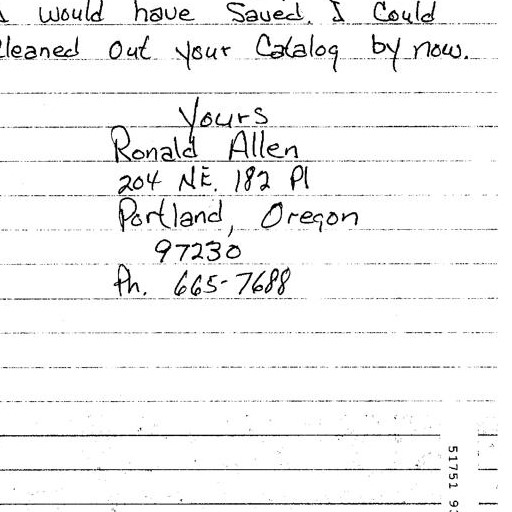 I would have Saved. I Could
Cleaned Out your Catalog by now.
Yours
Ronald Allen
204 NE. 182 Pl
Portland, Oregon
97230
Ph. 665-7688
51751 9